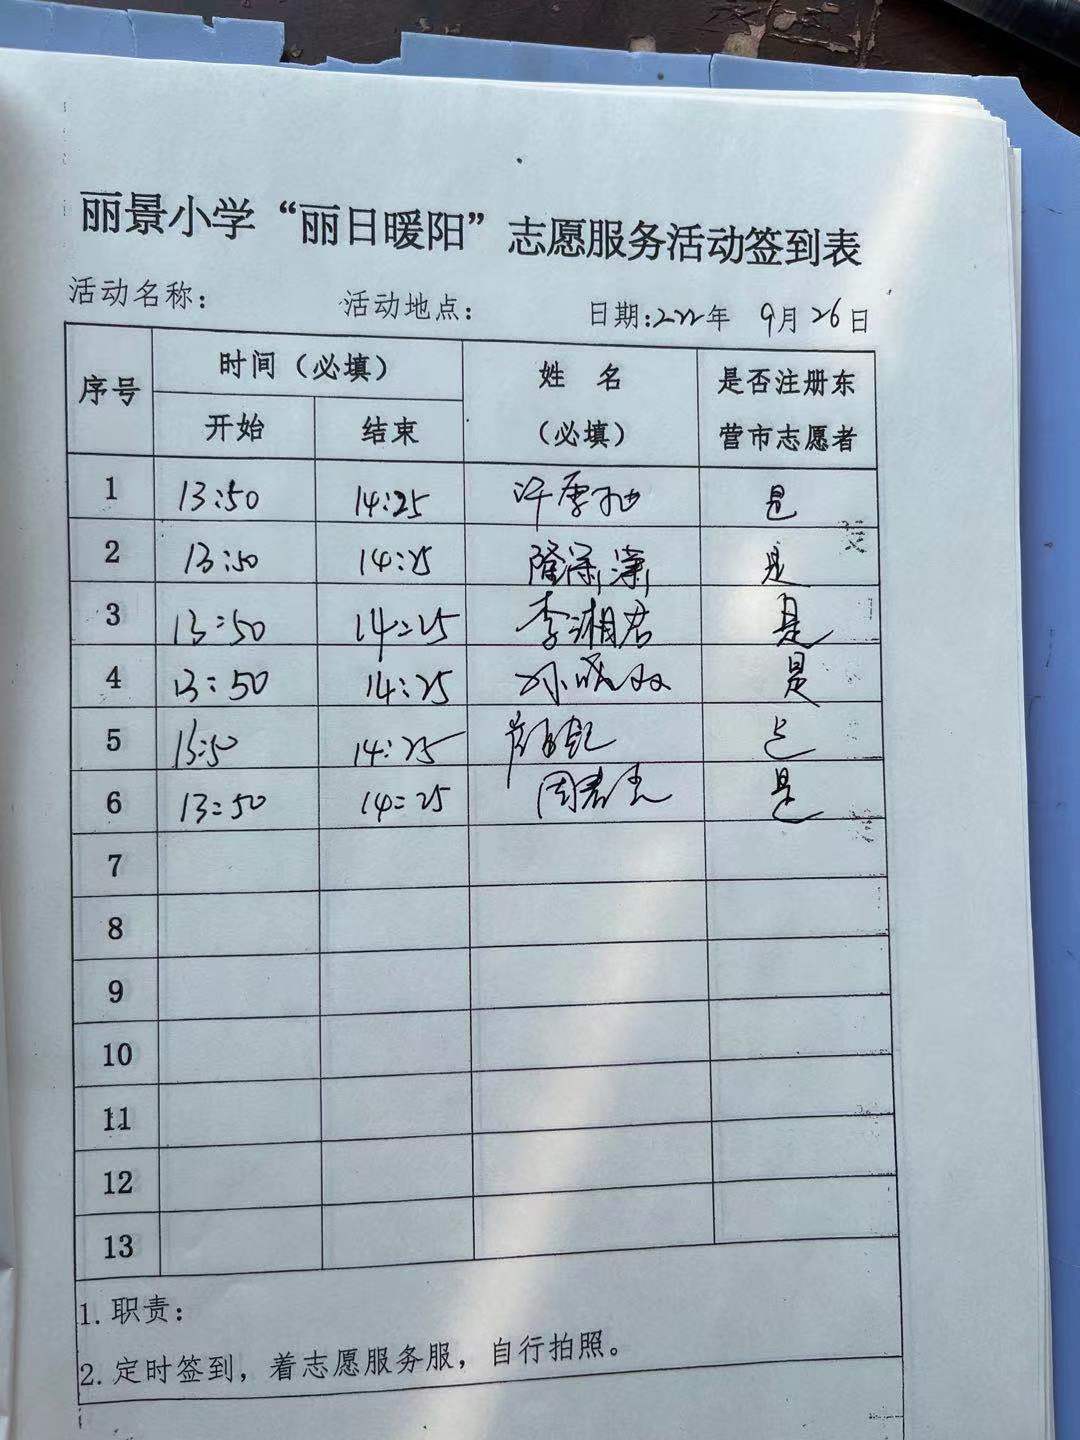 丽景小学“丽日暖阳”志愿服务活动签到表
活动名称： 活动地点： 日期:2022年 9月26日
序号 时间（必填） 姓 名（必填） 是否注册东营市志愿者
开始 结束
1 13:50 14:25 是
2 13:50 14:25 隆潇潇 是
3 13:50 14:25 李湘君 是
4 13:50 14:25 是
5 13:50 14:25 是
6 13:50 14:25 是
7
8
9
10
11
12
13
1. 职责：
2. 定时签到，着志愿服务服，自行拍照。